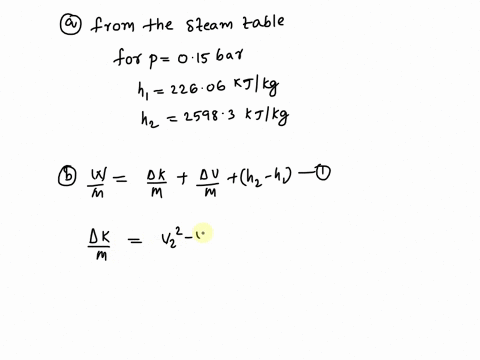 ⓐ from the steam table
for p = 0.15 bar
h₁ = 226.06 KJ/kg
h₂ = 2598.3 KJ/kg
ⓑ W/m = ΔK/m + ΔU/m + (h₂ - h₁) — ①
ΔK/m = V₂² -